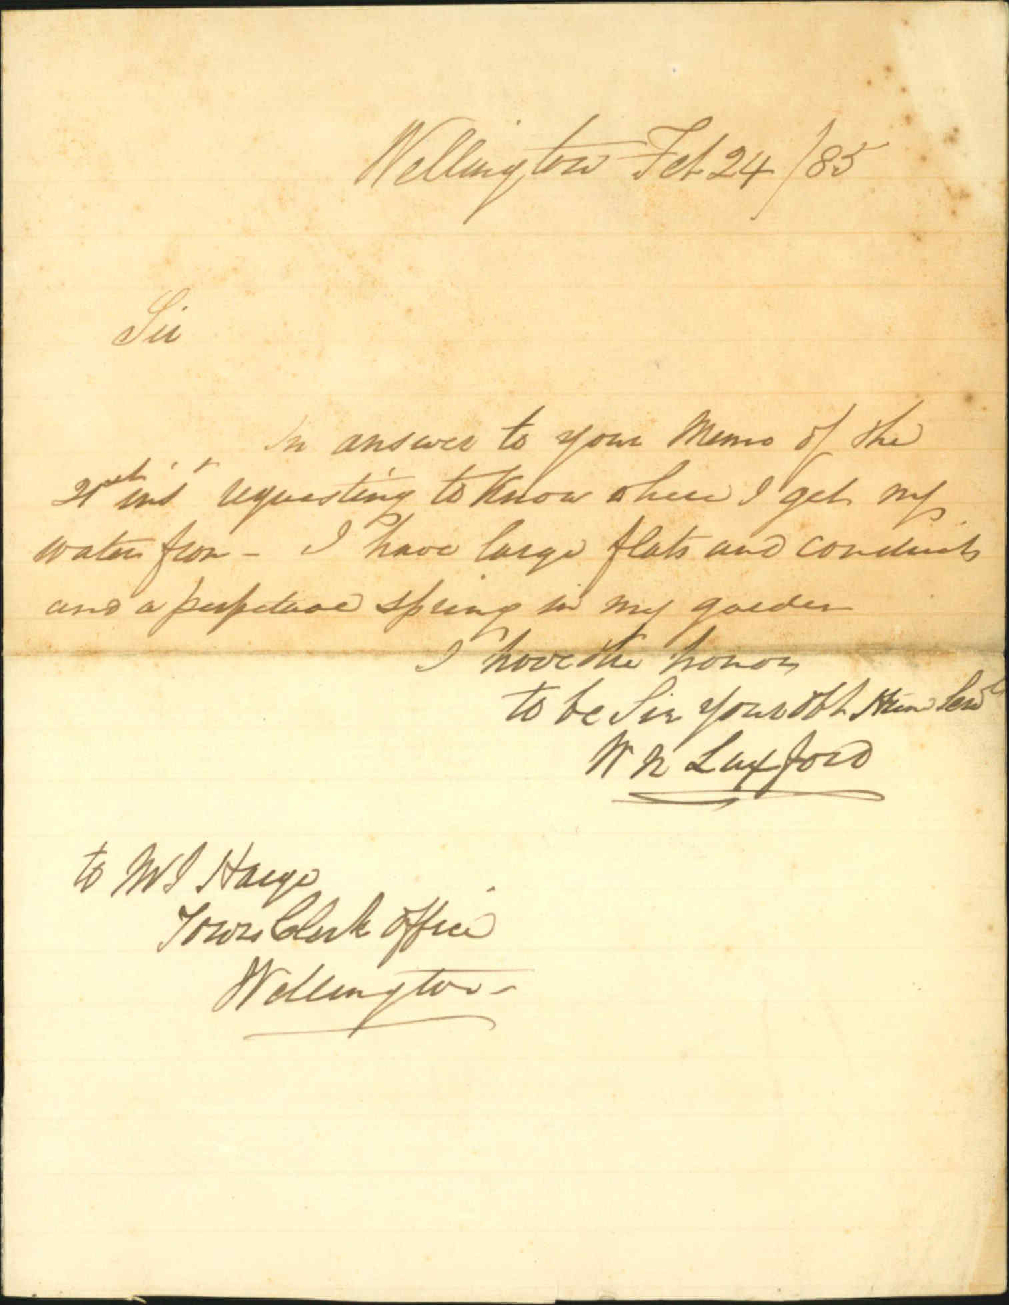 Wellington Feb 24/85
Sir
In answer to your Memo of the
21st inst requesting to Know where I get my
water from - I have large flats and conduits
and a perpetual spring in my garden
I have the honor
to be Sir your obt Hum Servt
W N Luxford
to Mr J Haege
Town Clerk office
Wellington -